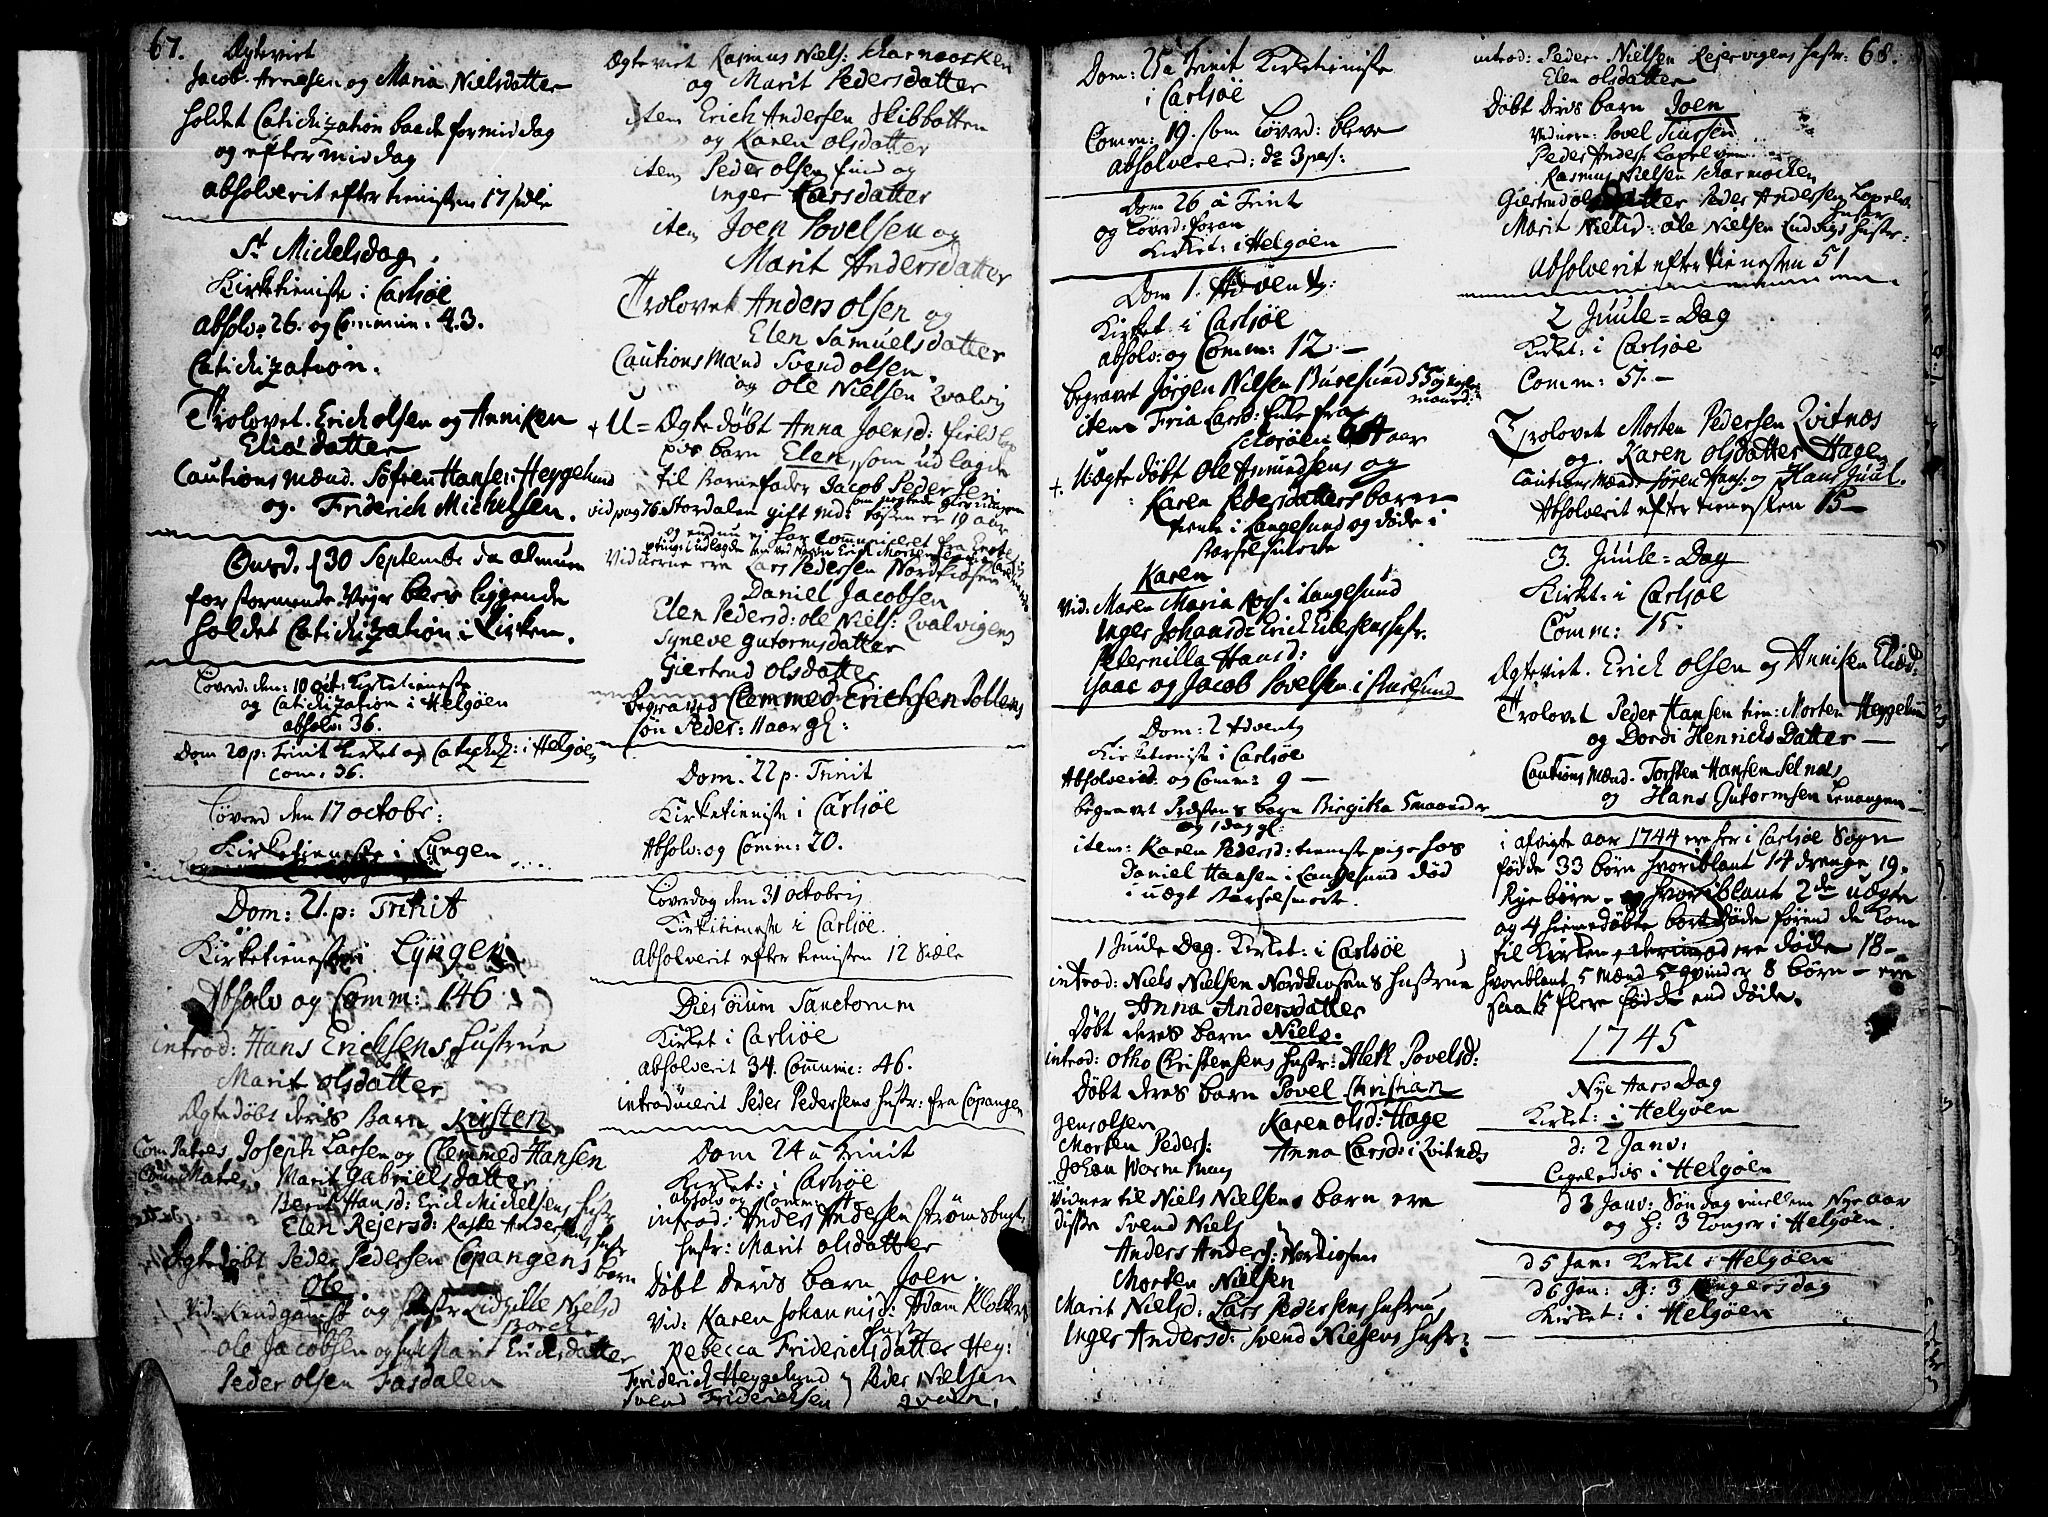 67.
Ægteviet
Jacob Arnesen og Maria Nielsdatter
holdet Catichization baade formiddag
og eftermiddag
absolverit efter tienisten 17 siæle
St Michelsdag.
Kirketieniste i Carlsøe
absolv: 26. og Commun: 43.
Catichization.
Trolovet Erich olsen og Anniken
Eliædatter
Cautions Mænd. Søfren Hansen Heggelund
og Friderich Michelsen.
Onsd. d 30 Septembr da almuen
for stormende Vejr blev liggende
holdet Catichization i Kirken.
Løverd: den: 10 oct: Kirketieneste
og Catichization i Helgøen
absolv: 36.
Dom 20 p: Trinit Kirket og Catichiz: i Helgøen
Com: 36.
Løverd den 17 octobr:
Kirketieneste i Lyngen
Dom: 21. p: Trinit
Kirketieneste i Lyngen
Absolv og Comm: 146
introd: Hans Erichsens Hustrue
Marit olsdatter
Ægte døbt deris Barn Kirsten
ComPatres Joseph Larsen og Clemmed Hansen
ComMatres. Marit Gabrielsdatter
Berit Hansd: Erich Michelsens Hustr
Elen Rejersd: Raste Andersens Hustr
Ægte døbt Peder Pedersen Copangens barn
Ole
Vid: og Hustr Lidzille Nielsd
Borch
Ole Jacobsen og Marit Erichsdatter
Peder olsen Fasdalen
Ægteviet Rasmus Niels: Scharmocken
og Marit Pedersdatter
item Erich Andersen Skibbotten
og Karen olsdatter
item Peder olsen find og
Inger Larsdatter
item Joen Povelsen og
Marit Andersdatter
Trolovet Anders olsen og
Elen Samuelsdatter
Cautions Mænd Svend olsen.
og Ole Nielsen Qvalvig
+ U = Ægte døbt Anna Joensd:
barn Elen, som udlagde
til Barnefader Jacob Pedersen
vid pag 76 Stordalen gift Md: er 19 aar
og endnu ej har communiceret
Vidnerne ere Lars Pedersen Nordkiosen
Daniel Jacobsen
Elen Pedersd: ole Niels: Qvalvigens
Syneve gutormsdatter
Giertrud olsdatter
Begraved Clemmed Erichsen Pollens
søn Peder: Maar gl:
Dom: 22 p. Trinit
Kirketieniste i Carlsøe
Absolv: og Comm: 20.
Løverdag den 31 octobris
Kirkitieneste i Carlsøe.
absolverit efter tienisten 12 Siæle
Dies oium Sanctorum
Kirket i Carlsøe
absolverit 34. Communic: 46.
introducerit Peder Pedersens Hustr: fra Copangen
Dom 24 a Trinit
Kirket: i Carlsøe
absolv og Comm:
introd: Anders Andersen Strømsbugt:
Hustr: Marit olsdatter
Døbt deris barn Joen.
Vid: Karen Johannisd: Adam Klokkers
Hustr
Rebecca Friderichsdatter Heg:
Friderich Heggelund } Peder Nielsen
Svend Friderichsen
Dom: 25 a Trinit Kirketieniste
i Carlsøe
Comm: 19. som Løverd: bleve
absolvererd: do 3 pers:
Dom 26 a Trinit
og Løverd: foran
Kirket: i Helgøen
Dom 1. Advent:
Kirket i Carlsøe
absolv: og Comm: 12. –
begravet Jørgen Nielsen Buresund 55 og
maaned:
item Fria Larsd: Enke fra
64 aar
+. Uægte døbt Ole Asmundsens og
Karen Pedersdatters barn
tiente i Langesund og døde i
Barselsmorte
Karen
Vid: Maren Maria i Langesund
Inger Johansd: Erich Eilersens Hustr.
Petternilla Hansd:
Isaac og Jacob Povelsen i
Dom: 2 Adventz
Kirketieniste i Carlsøe
Absolverit og Comm: 9 –
begravet Præstens barn Birgitha 5 maaneder
og 1 dag gl:
item: Karen Pedersd: tieniste pige hos
Daniel Hansen i Langesund død
i uægt Barselsmorte.
1 Juule Dag. Kirket: i Carlsøe
introd: Niels Nielsen Nordkiosens Hustrue
Anna Andersdatter
Døbt deris barn Niels.
introd: Otho Christensens Hustr: Aleth Povelsd:
Døbt deres barn Povel Christian
Jens olsen
Karen olsd: Hage
Morten Peders:
Anna Larsd: i Qvitnæs
Johan Worm
Vidner til Niels Nielsens barn ere
disse Svend Niels
Anders Anders: Nordkiosen
Morten Nielsen
Marit Nielsd: Lars Pedersens Hustrue
Inger Andersd: Svend Nielsens Hustr:
68.
introd: Peder Nielsen Rejervigens Hustr:
Elen olsdatter
Døbt deris barn Joen
Vidnere: Povel Siursen
Peder Anders: Lapelven
Rasmus Nielsen Scharmocken
Giertrud olsdatter Peder Andersens Lapelv.
Hustr
Marit Nielsd: ole Nielsen Hustr:
Absolverit efter tienesten 51
2 Juule = Dag
Kirket: i Carlsøe
Comm: 57. –
Trolovet Morten Pedersen Qvitnæs
og Karen olsdatter Hage
Cautions Mænd Søren Hans: og Hans Juul.
Absolverit efter tienesten 15 –
3. Juule = Dag
Kirket: i Carlsøe
Comm: 15.
Ægteviet. Erich olsen og Anniken Eliæd:
Trolovet Peder Hansen tien: Morten Heggelund
og Dordi Henrichs Datter –
Cautions Mænd. Torsten Hansen Selnæs
og Hans Gutormsen Levangen –
i afvigte aar 1744 ere her i Carlsøe Sogn
fødde 33 børn hvoriblant 14 drenge 19.
Pigebørn – og hvoriblant 2de uægte
og 4 hiemedøbte døde førend de kom
til Kirken, ere døde 18 –
hvoriblant 5 mænd 5 qvinder 8 børn – ere
saa 15 flere fødde end døde.
1745
Nye Aars Dag
Kirket: i Helgøen
d: 2 Janv:
Ligeledis i Helgøen
d 3 Janv: Søndag imellem Nye aar
og H: 3 Konger i Helgøen.
d 5 Jan: Kirket i Helgøen
d 6 Jan: H: 3 Kongersdag
Kirket: i Helgøen